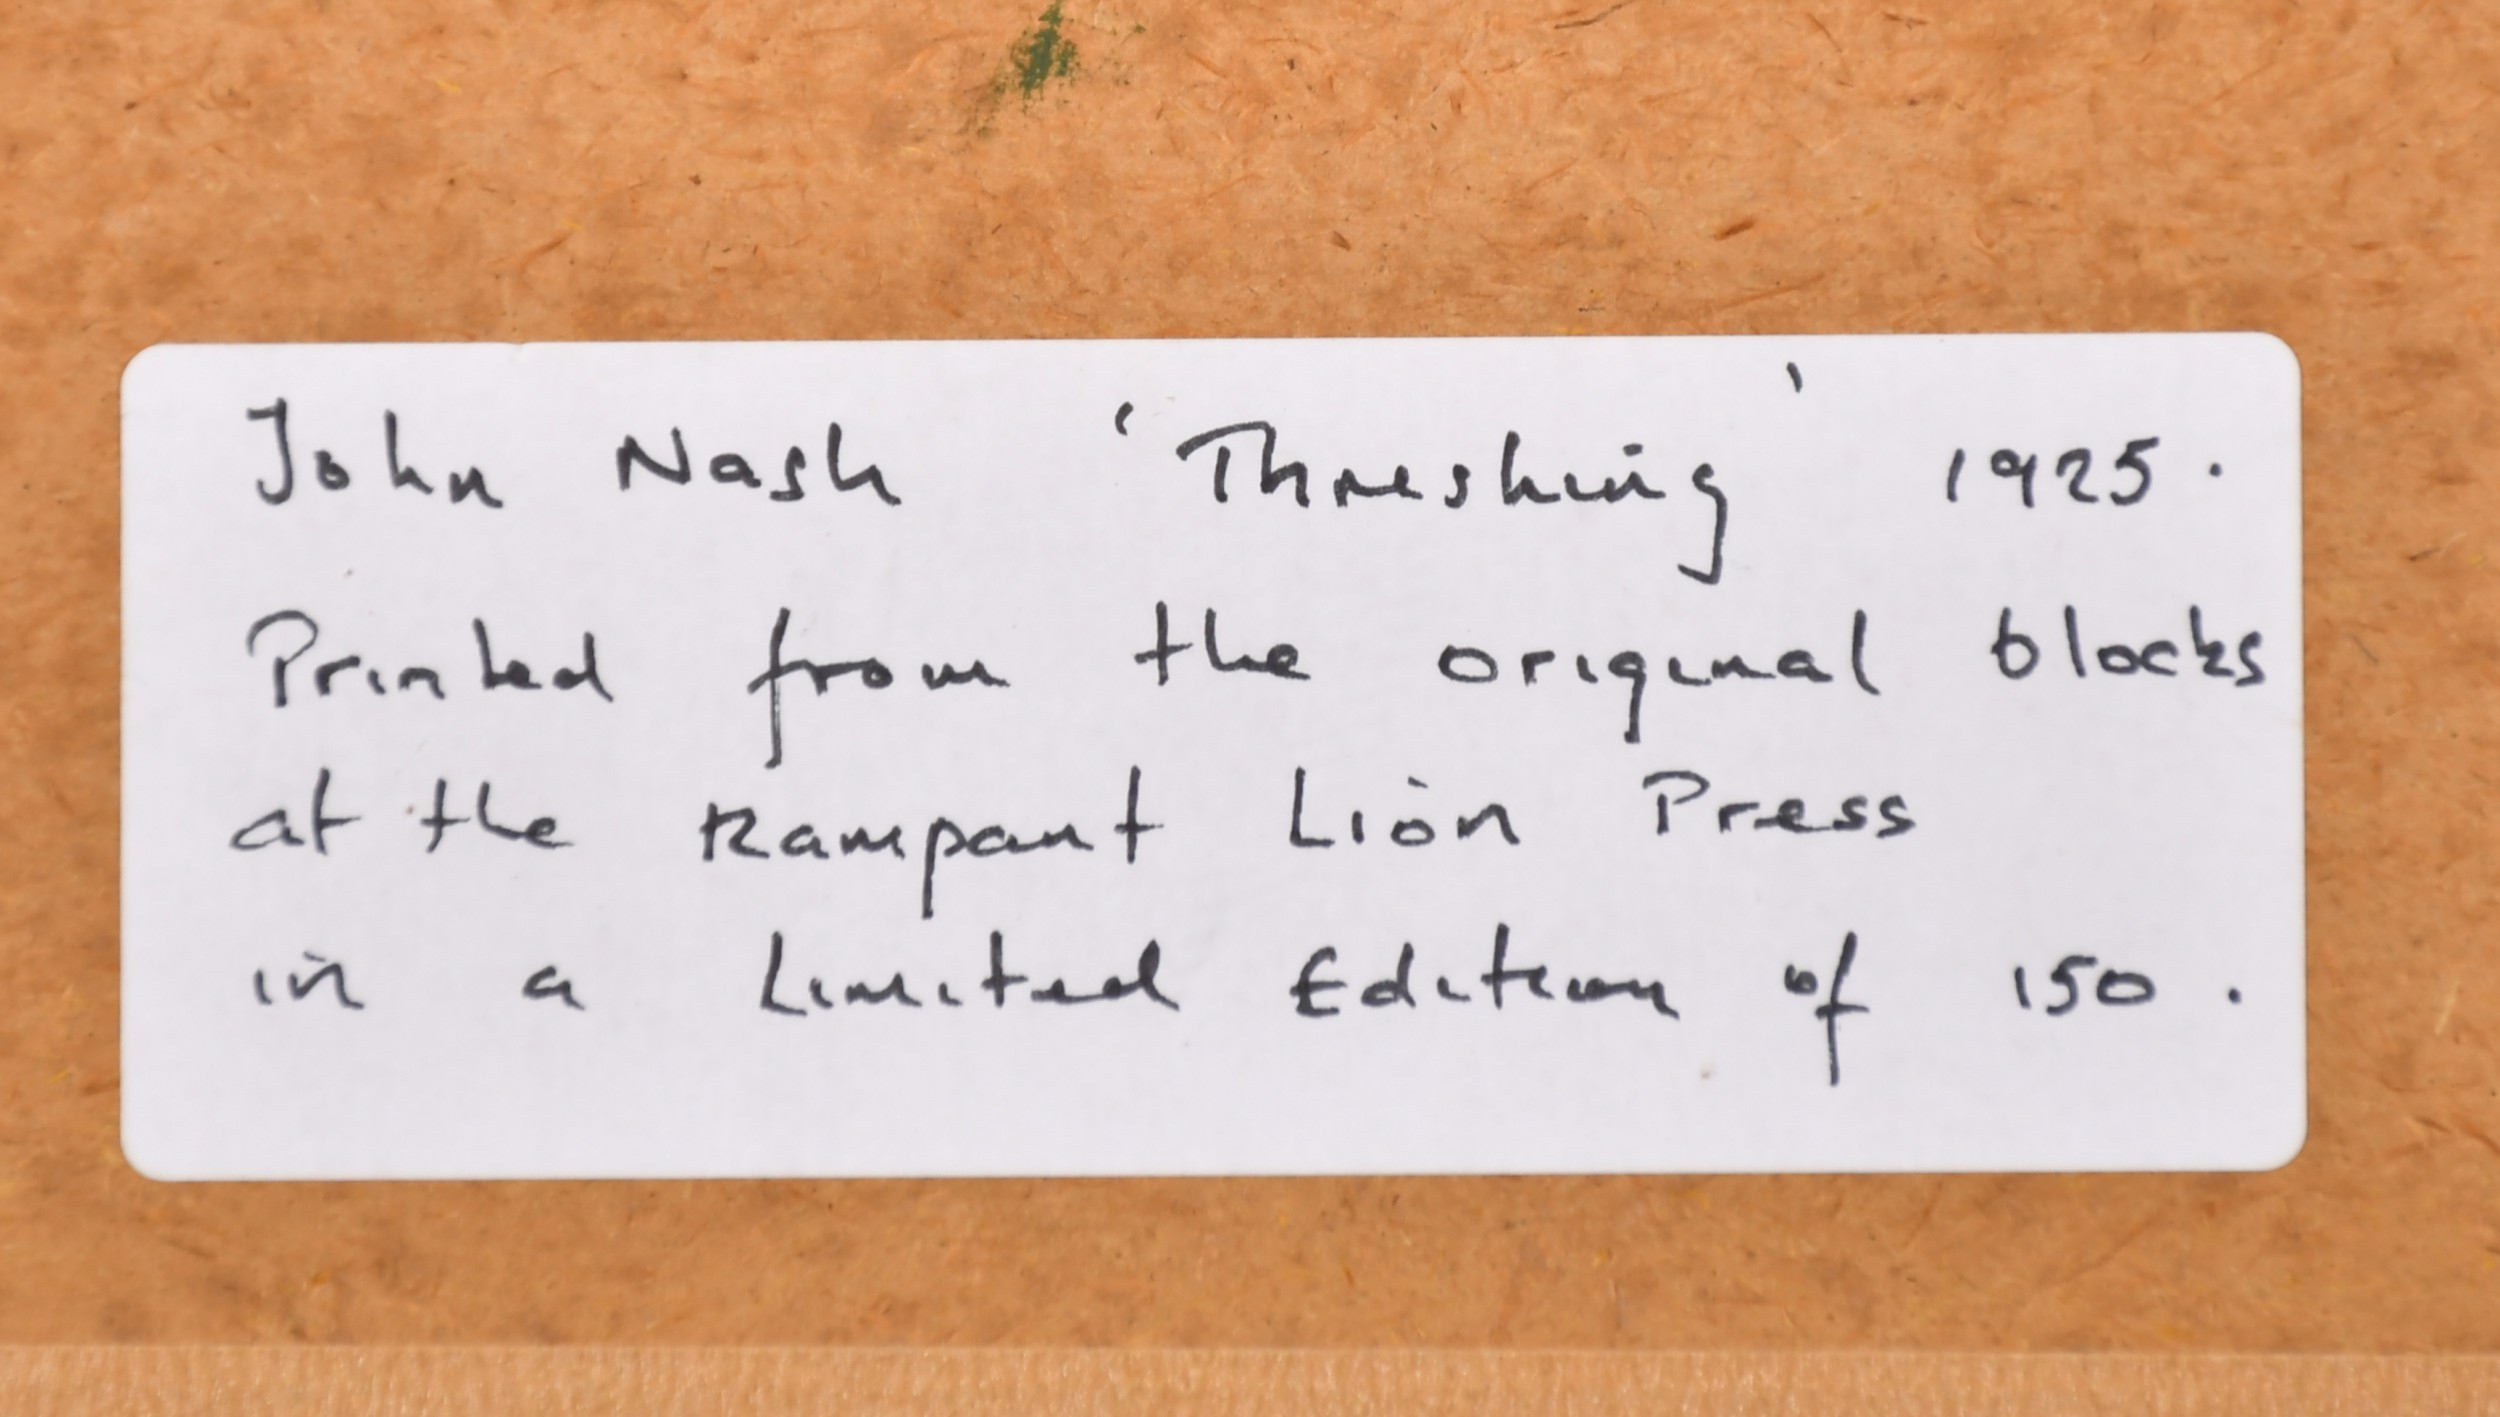 John Nash 'Threshing' 1925.
Printed from the original blocks
at the Rampant Lion Press
in a Limited Edition of 150.